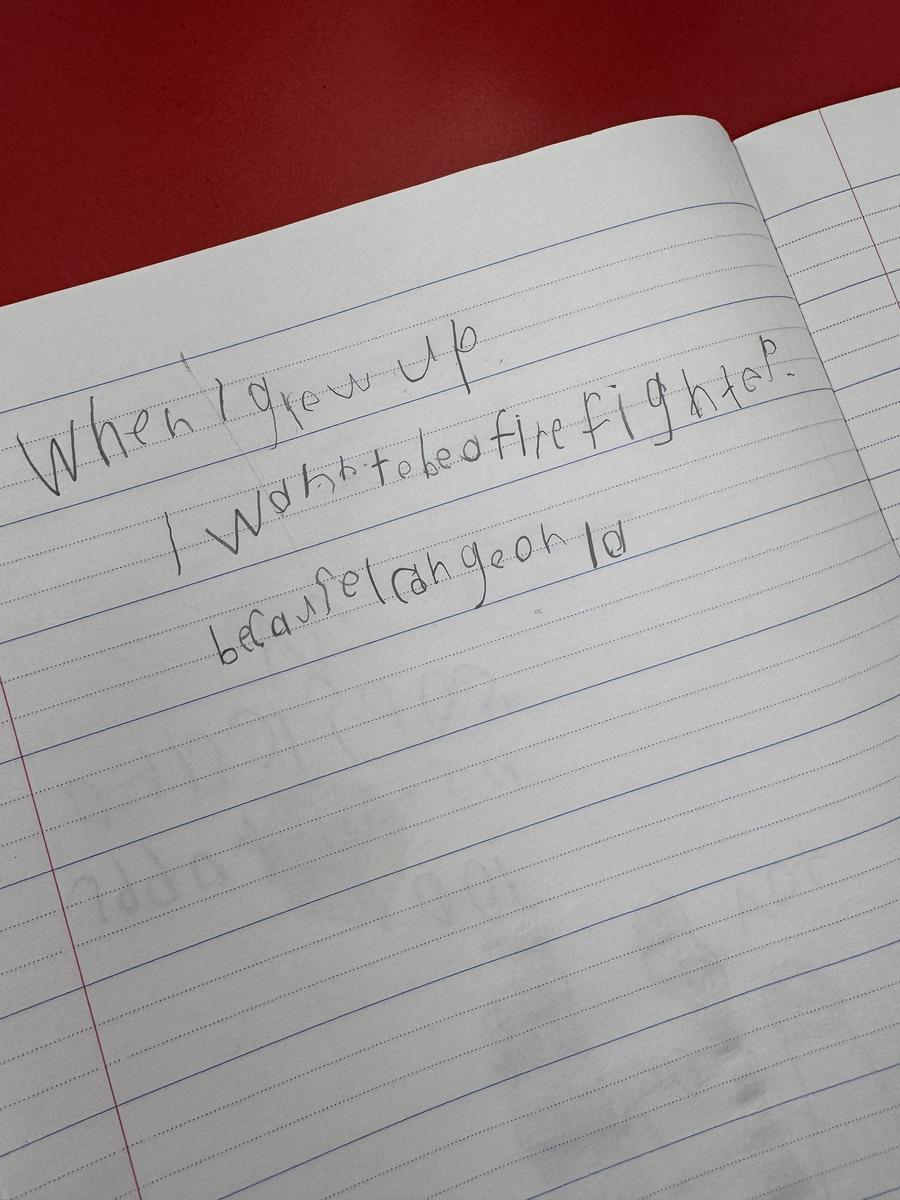 When I grew up.
I wannt to be a fire fighter.
because I can ge on la